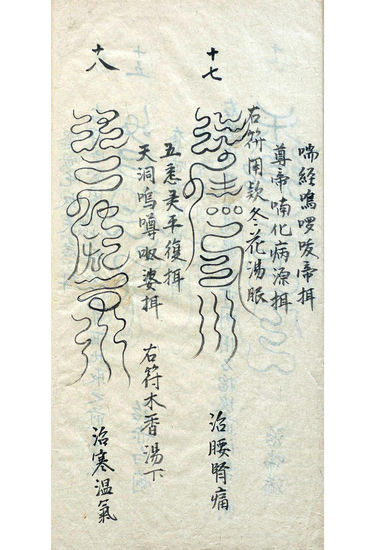 十七
喘經嗚啰唆帝揖
尊帝喃化病源揖
右符用款冬花湯服
治腰腎痛
十八
五悉灵平復揖
天洞嗚噂呶婆揖
右符木香湯下
治寒温氣